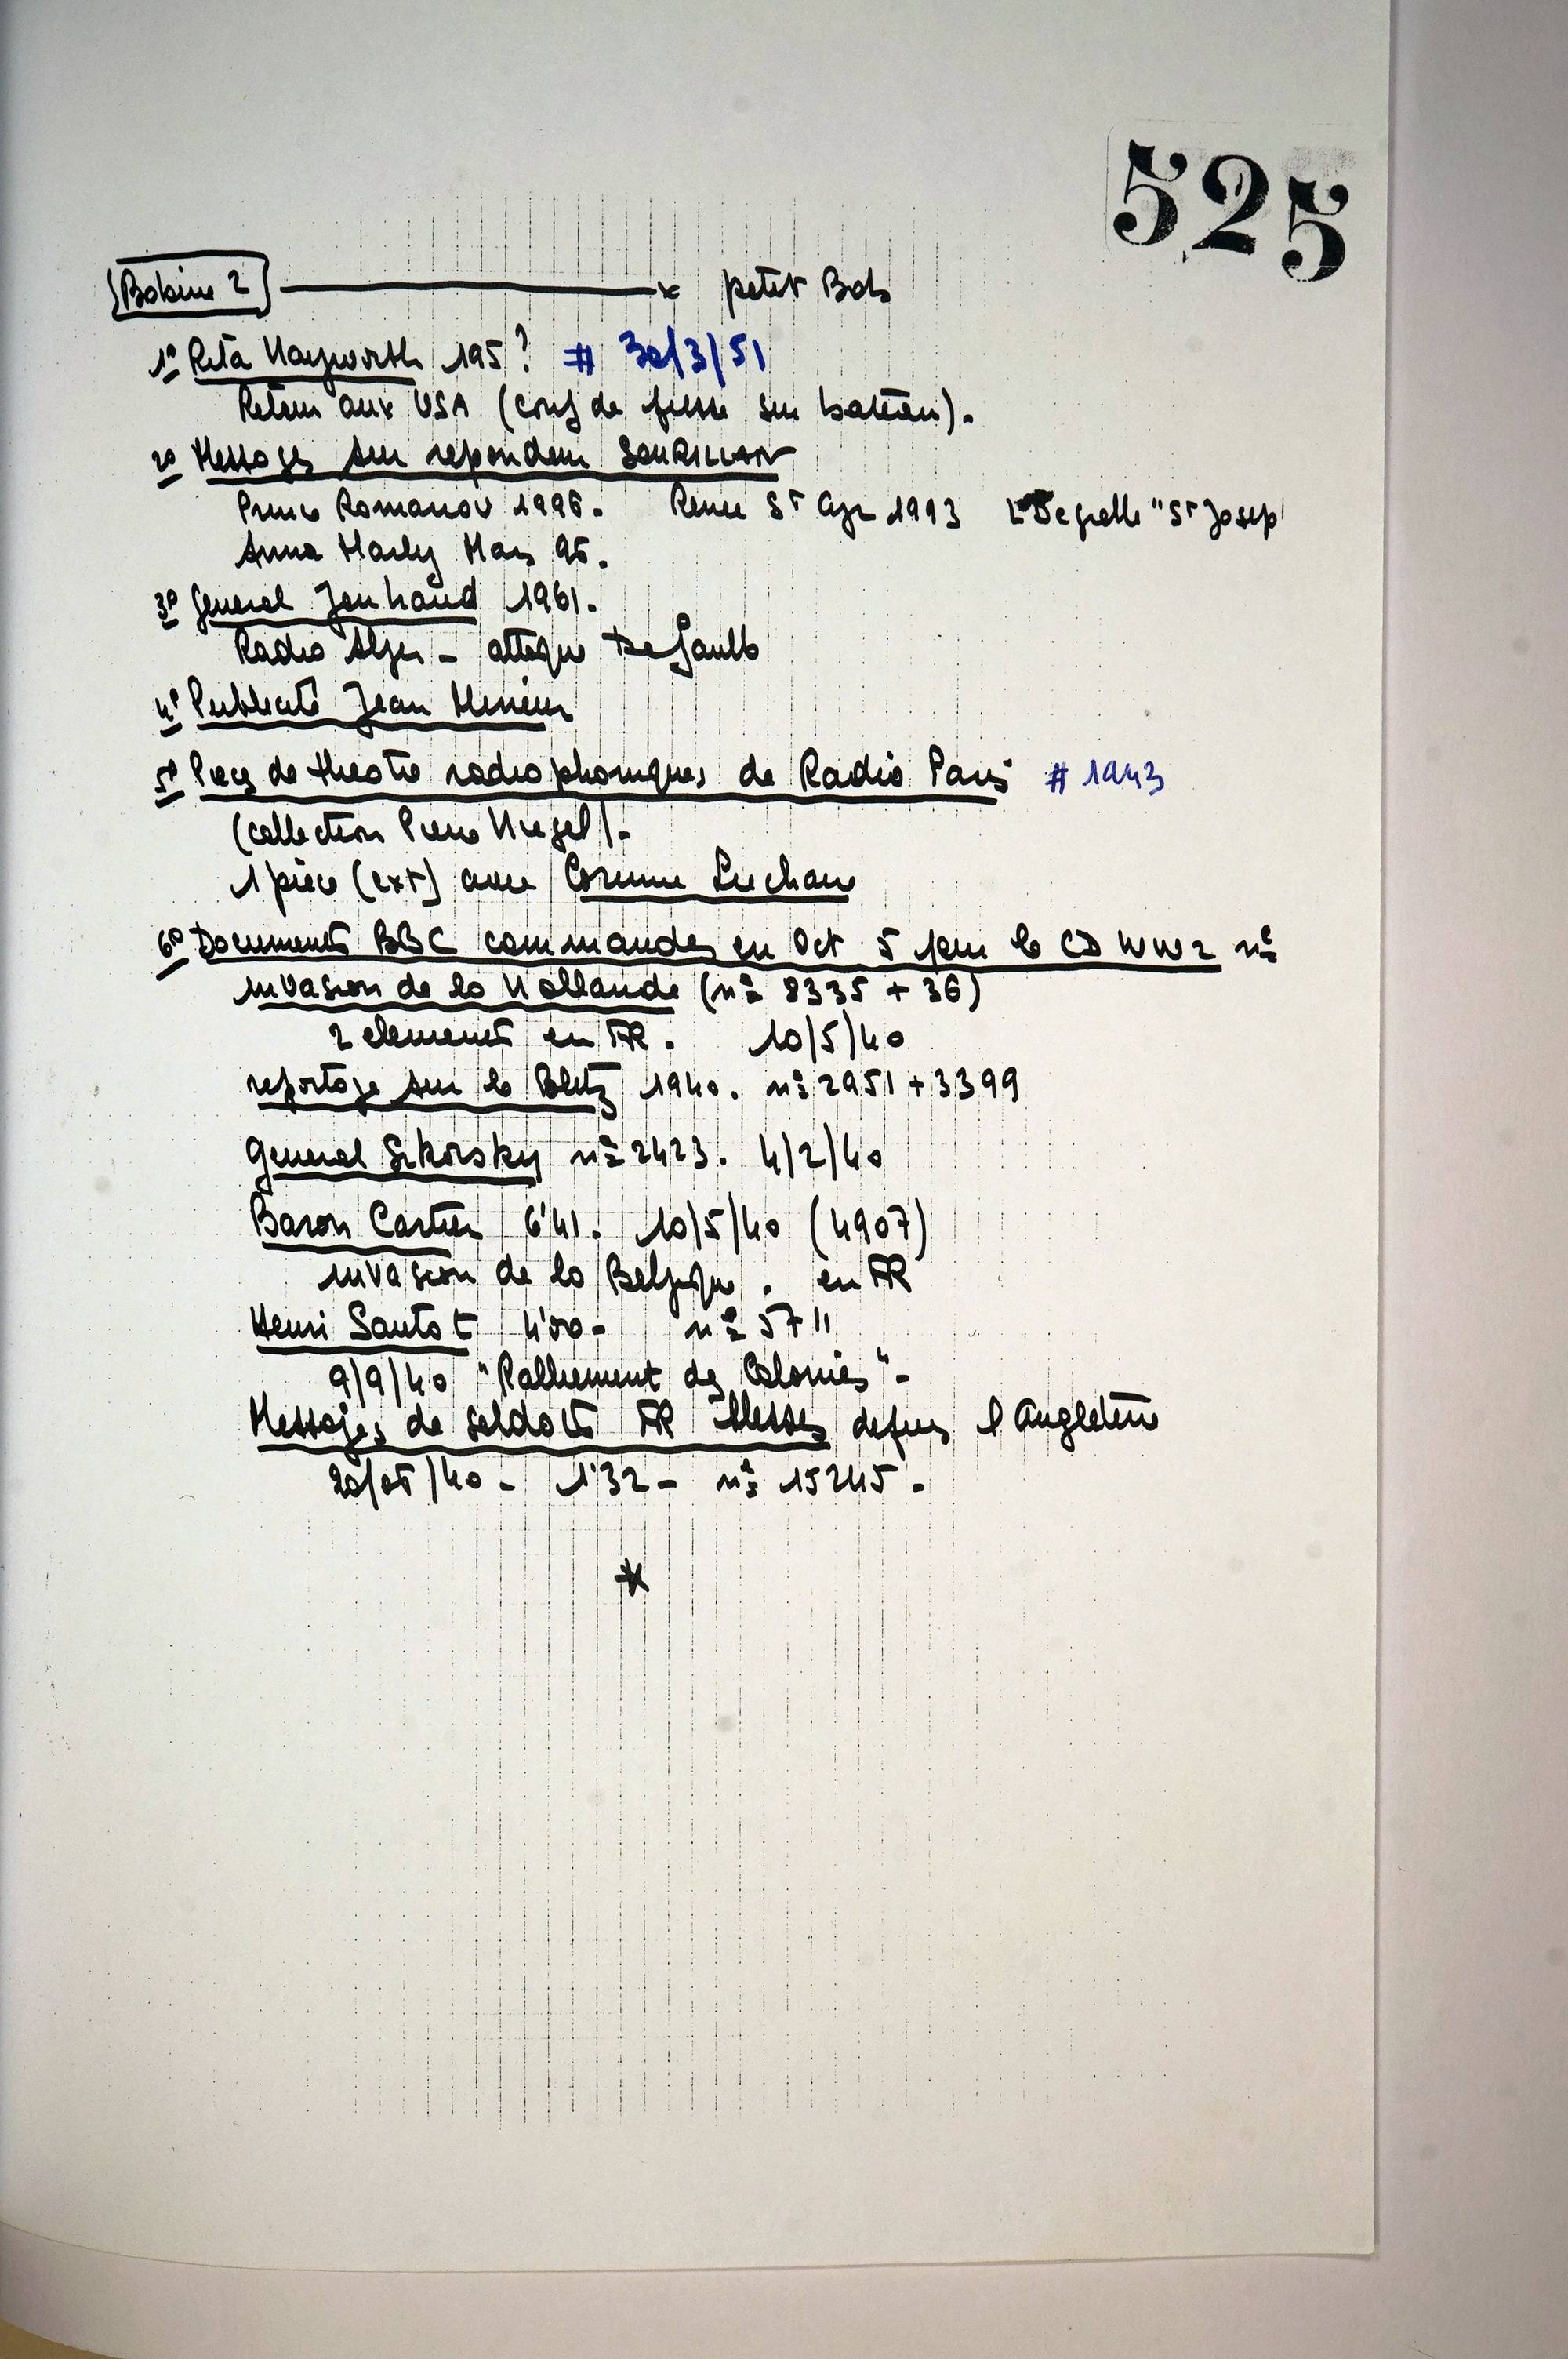 525
Bobine 2 petit Bob
1º Rita Hayworth 195? # 30/3/51
Retour aux USA (conf de presse sur bateau).
2º Messages sur repondeur SOURILLAN
Prince Romanov 1996. Renee St Cyr 1993 L Degrelle "St Josep
Anna Marly Mars 96.
3º General Jouhaud 1961.
Radio Alger - attaque De Gaulle
4º Publicité Jean Mineur
5º Pieces de theatre radiophoniques de Radio Paris # 1943
(collection Pierre Hiegel).
1 piece (ext) avec Corinne Luchaire
6º Documents BBC commandes en Oct 5 pour le CD WW2 nº
invasion de la Hollande (nº 8335 + 36)
2 elements en FR. 10/5/40
reportage sur le Blitz 1940. nº 2951 + 3399
General Sikorsky nº 2423. 4/2/40
Baron Cartier 6'41. 10/5/40 (4907)
invasion de la Belgique. en FR
Henri Sautot 4'00 - nº 5711
9/9/40 "Ralliement des Colonies" -
Messages de soldats FR blesses depuis l'Angleterre
/40 - 1'32 - nº 15245.
*